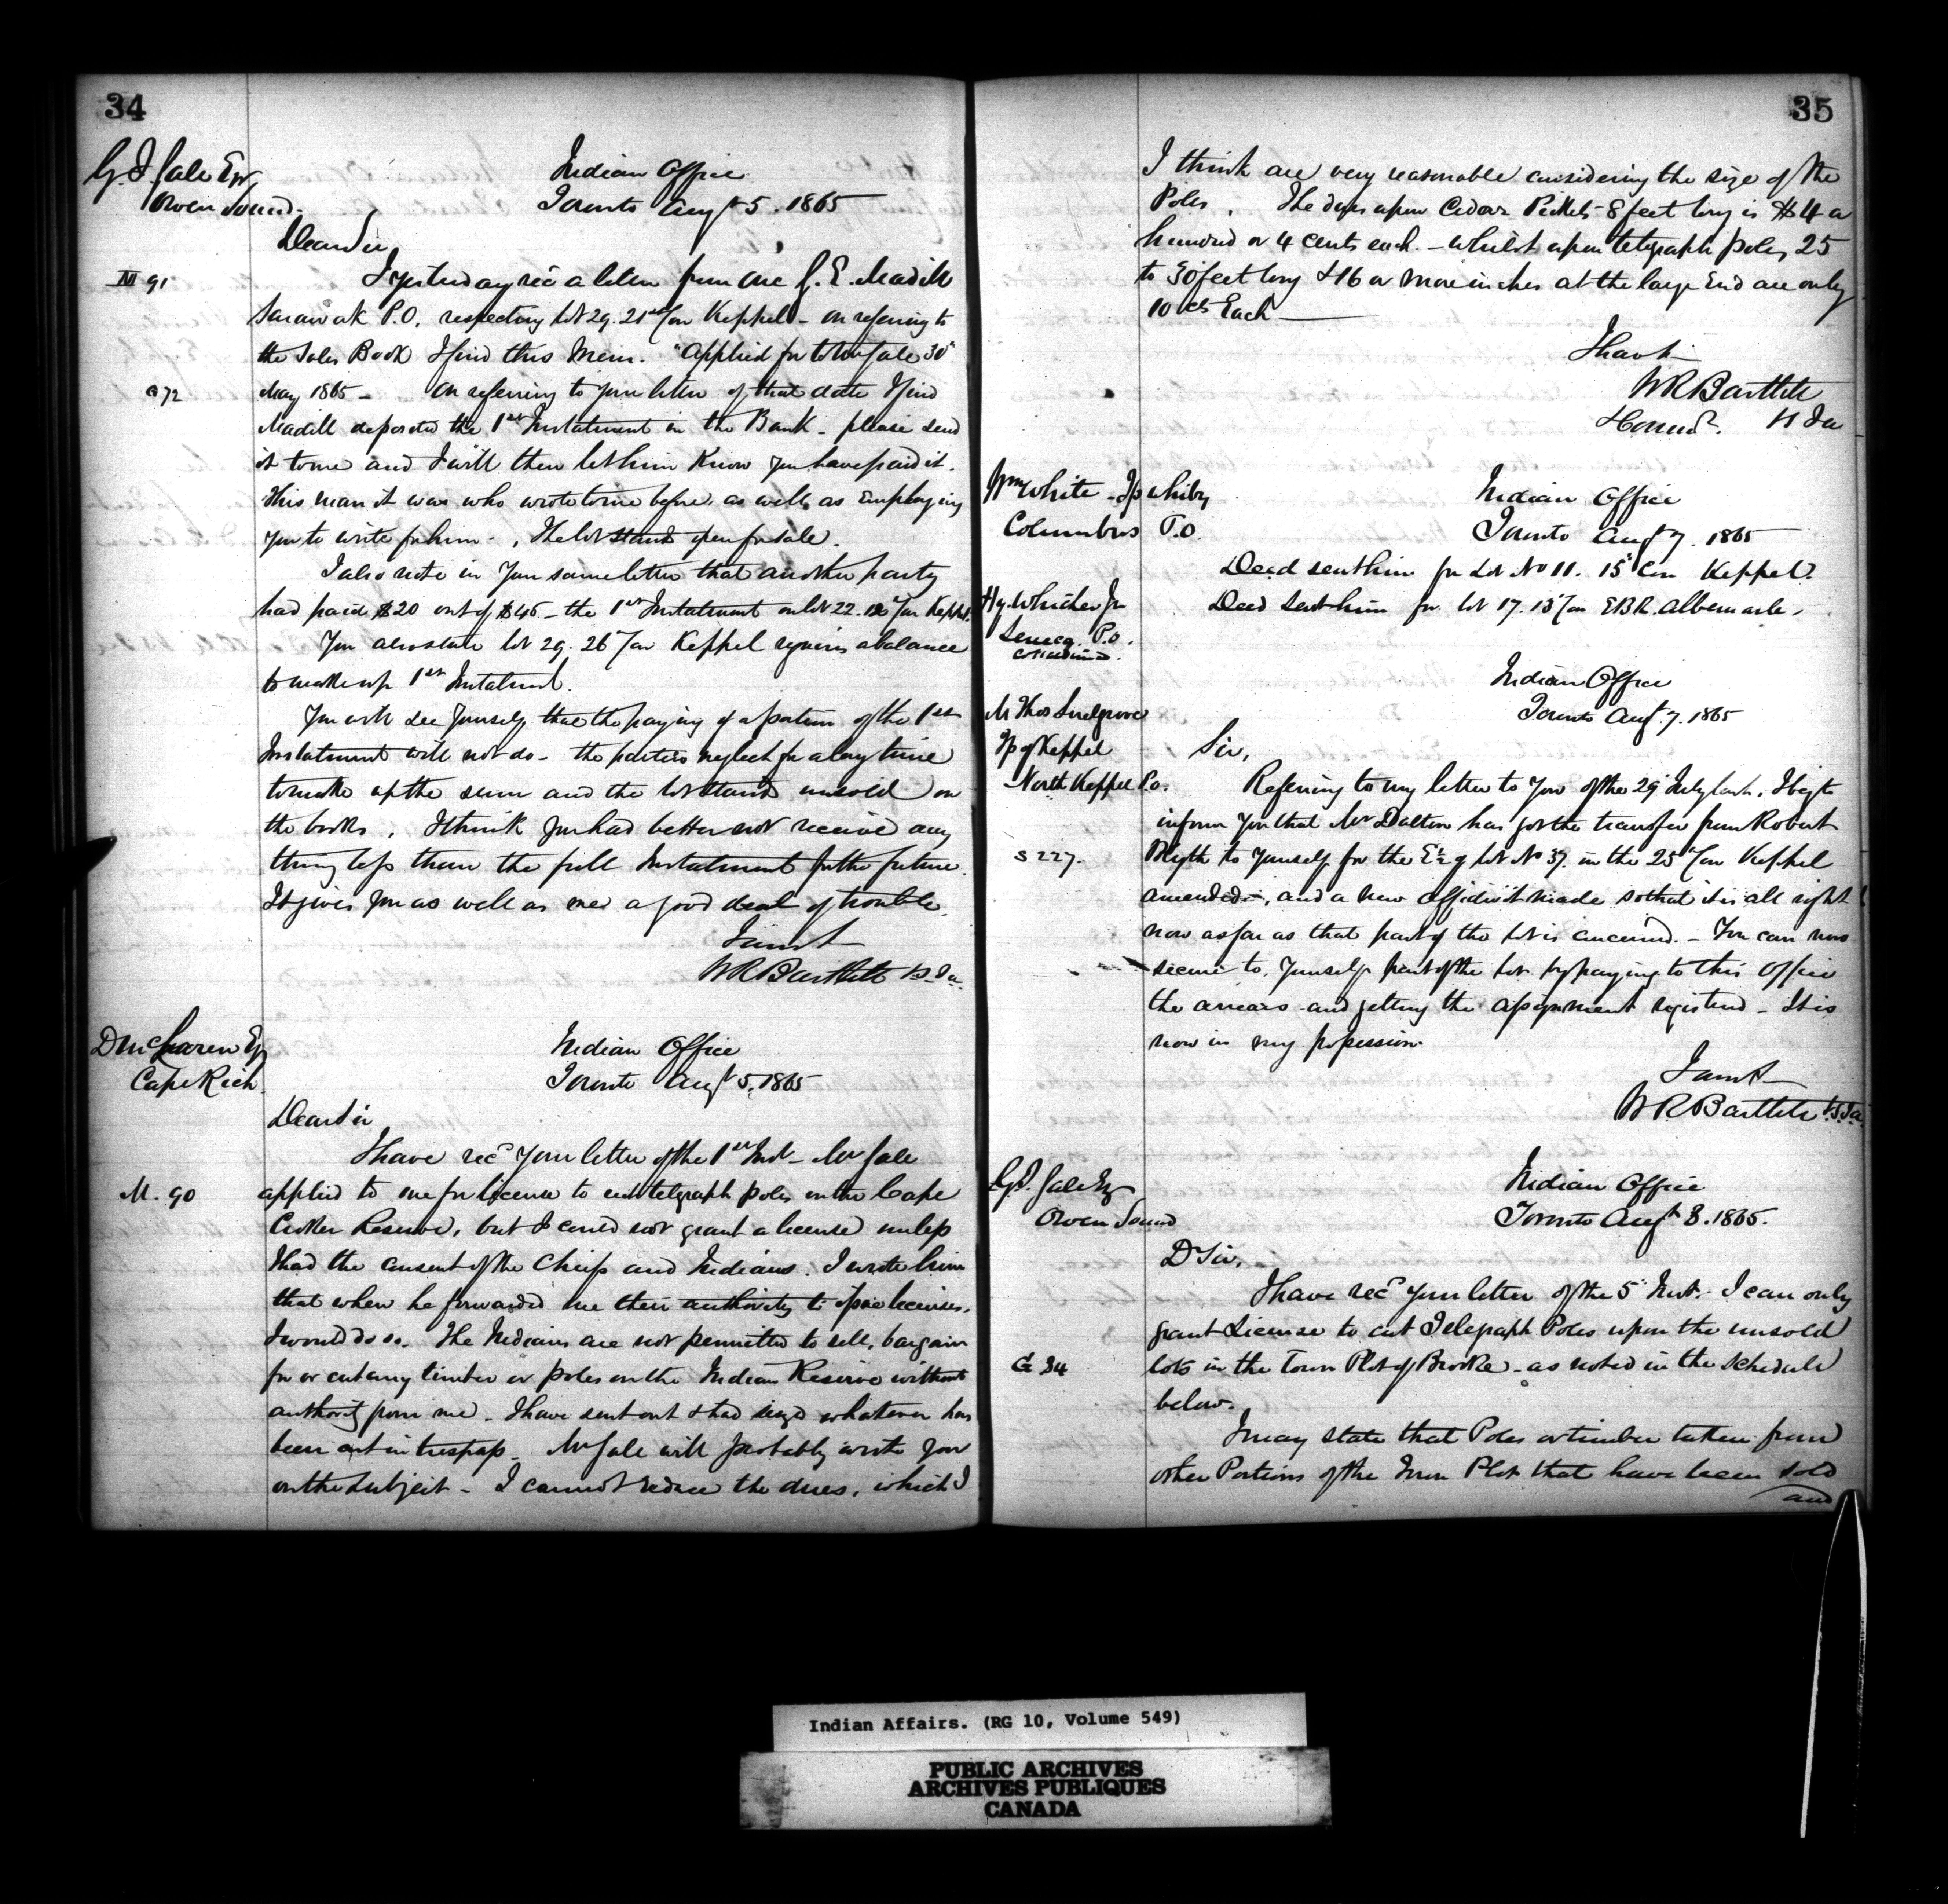 34
G. J. Gale Esqr
Owen Sound.
Indian Office
Toronto Augt 5. 1865
Dear Sir
M 91
I yesterday recd a letter from one J. E. Madill
Sarawak P.O. respecting lot 29. 21st Con Keppel - On referring to
the Sales Book I find this Mem. "Applied for to Mr Gale 30"
G 72
May 1865 - On referring to your letter of that date I find
Madill deposited the 1st Instalment in the Bank - please send
it to me and I will then let him know you have paid it.
This man it was who wrote to me before as well as employing
you to write for him - . The lot stands open for sale.
I also note in your same letter that another party
had paid $20 out of $45 - the 1st Instalment on lot 22. Con Keppel.
You also state lot 29. 26 Con Keppel requires a balance
to make up 1st Instalment.
You will see yourself that the paying of a portion of the 1st
Instalment will not do - the parties neglect for a long time
to make up the sum and the lot stands unsold on
the books. I think you had better not receive any
thing less than the full Instalment for the future.
It gives you as well as me a good deal of trouble.
I am &
W R Bartlett V.S. I a.
D McLaren Esq
Cape Rich
Indian Office
Toronto Augt 5. 1865
Dear Sir
I have recd your letter of the 1st Inst - Mr Gale
M. 90
applied to me for license to cut telegraph poles on the Cape
Croker Reserve, but I could not grant a license unless
I had the consent of the Chiefs and Indians. I wrote him
that when he forwarded me their authority to issue licenses,
I would do so. The Indians are not permitted to sell, bargain
for or cut any timber or poles on the Indian Reserve without
authority from me - I have sent out & had seized whatever has
been cut in trespass - Mr Gale will probably write you
on the subject - I cannot reduce the dues, which I
35
I think are very reasonable considering the size of the
Poles. The dues upon Cedar Pickets 8 feet long is $4 a
hundred or 4 cents each - whilst upon telegraph poles 25
to 30 feet long & 16 or more inches at the large End are only
10 cts Each
I have &
W R Bartlett
V S I a
Wm White - Tp Whitby
Columbus P.O.
Indian Office
Toronto Augt 7. 1865
Deed sent him for Lot No 11. 15 Con Keppel.
Hy. Whicher Jr
Seneca P.O.
Deed sent him for lot 17. 15 Con E B R. Albemarle.
Indian Office
Toronto Augt. 7. 1865
Mr Thos Snelgrove
Tp of Keppel
North Keppel P.O.
Sir,
Referring to my letter to you of the 29 July last, I beg to
inform you that Mr Dalton has got the transfer from Robert
S 227.
Blyth to yourself for the E ½ of lot No 37. in the 25 Con Keppel
amended -, and a new affidavit made so that it is all right
now as far as that part of the lot is concerned. - You can now
secure to yourself part of the lot by paying to this office
the arrears and getting the assignment registered - It is
now in my possession.
I am &
W R Bartlett V.S. I a
G J. Gale Esq
Owen Sound
Indian Office
Toronto Augt 8. 1865.
D Sir,
I have recd your letter of the 5 Inst. - I can only
grant License to cut Telegraph Poles upon the unsold
G 34
lots in the Town Plot of Brooke - as noted in the schedule
below.
I may state that Poles or timber taken from
other Portions of the Town Plot that have been sold
and
Indian Affairs. (RG 10, Volume 549)
PUBLIC ARCHIVES
ARCHIVES PUBLIQUES
CANADA